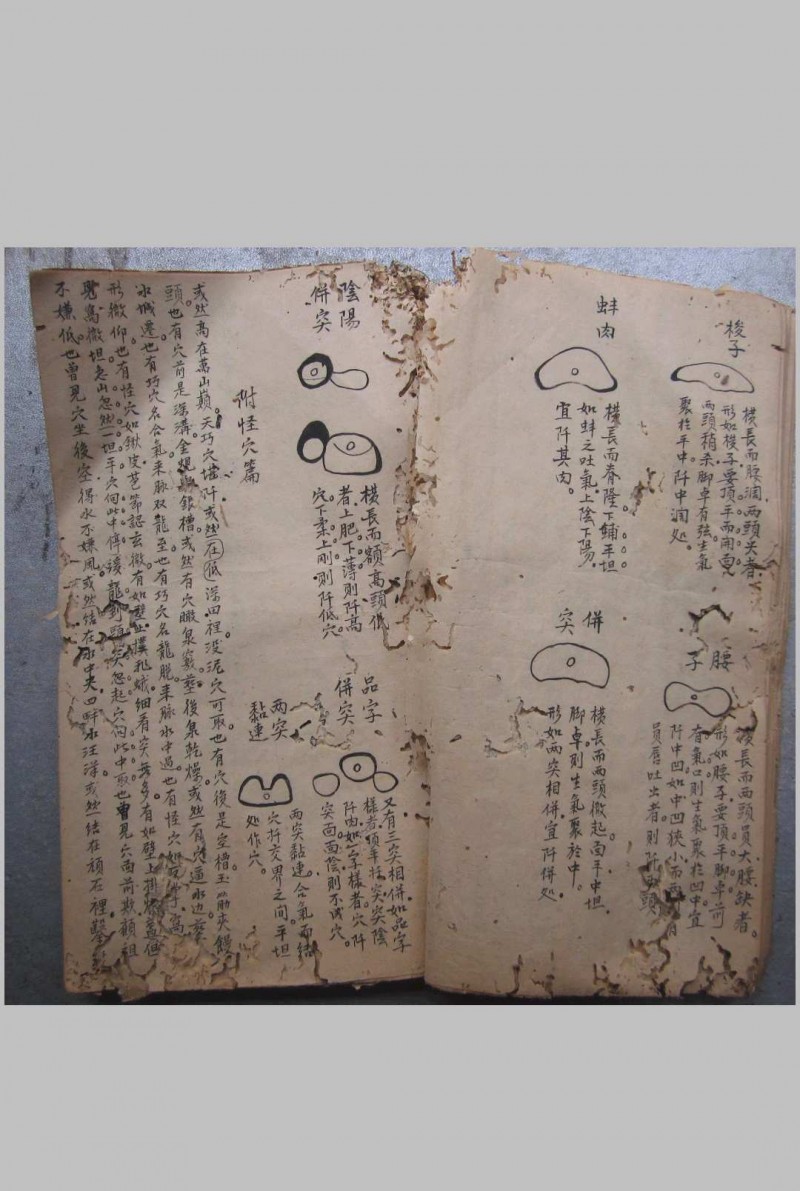 梭子
橫長而腰濶両頭尖者
形如梭子要頂平而開面
両頭稍禾脚卓有弦生氣
聚於平中阡中濶処
腰子
長而两頭員大腰缺者
形如腰子要頂平脚卓前
有氣口則生氣聚於凹中宜
阡中凹如中凹狹小而两
員唇吐出者則阡頭
蚌肉
橫長而脊隆下鋪平坦
如蚌之吐氣上陰下陽
宜阡其肉
併突
橫長而两頭微起面平中坦
脚卓則生氣聚於中
形如两突相併宜阡併処
陰陽併突
橫長而額高頭低
者上肥下薄則阡高
穴下柔上剛則阡低穴
品字併突
又有三突相併如品字
樣者頂平挂突突陰
阡肉如一字樣者穴阡
突面面陰則不成穴
两突黏連
两突黏連合氣而结
穴扦交界之間平坦
処作穴
附怪穴篇
天巧穴堪阡或然在低深田裡没泥穴可取也有穴後是空槽玉筯夾饅
或然高在萬山巔
頭也有穴前是深溝金銀槽或然有穴瞰泉竅塟後泉乾燥或然有穴逼水边塟
水城遷也有巧穴名合氣來脉双龍至也有巧穴名龍脫来脉水中過也有怪穴如字篙
形微仰也有怪穴如鍬皮芭節認玄微有如壁上撲飛蛾細看突無多有如壁上掛
覽高微坦急山忽然一坦平穴向此中停緩龍到頭突忽起穴向此中取也曾見穴面前欺顧祖
不嫌低也曾見穴坐後空得水不嫌風或然结在水中央四畔水汪洋或然结在頑石裡鑿